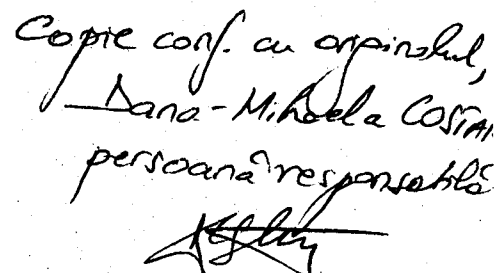 Copie conf. cu originalul,
Dana-Mihaela
persoană responsabilă